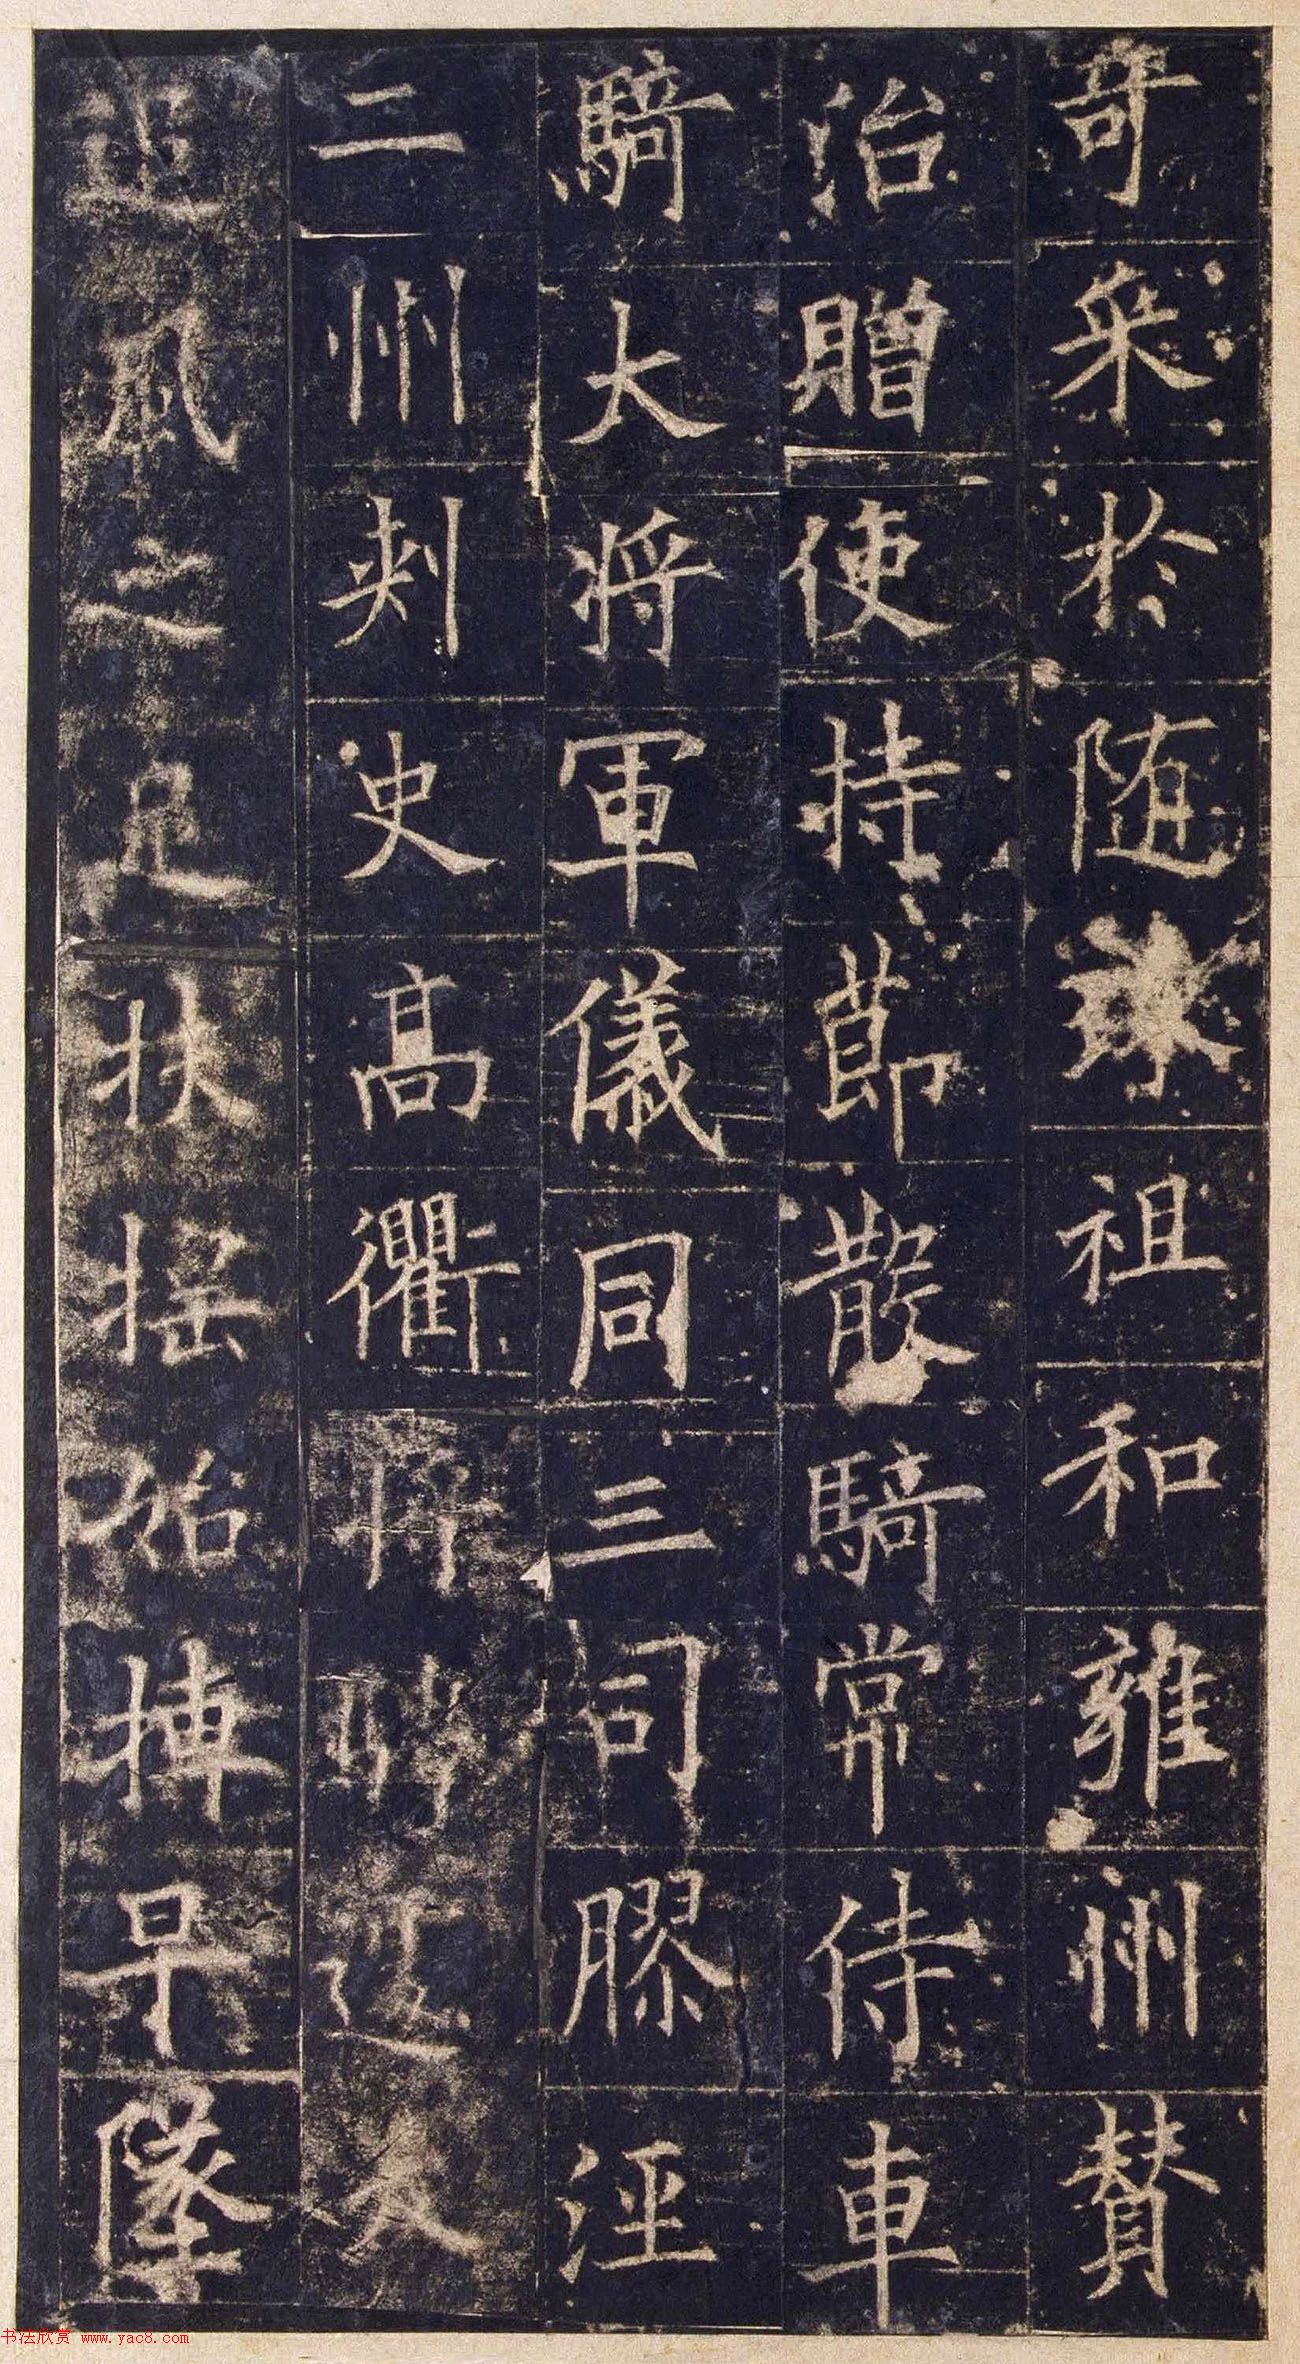 奇采於随珠祖和雍州賛
治贈使持節散騎常侍車
騎大將軍儀同三司膠涇
二州刾史高衢將騁
追風之足扶揺始摶早墜
书法欣赏 www.yac8.com